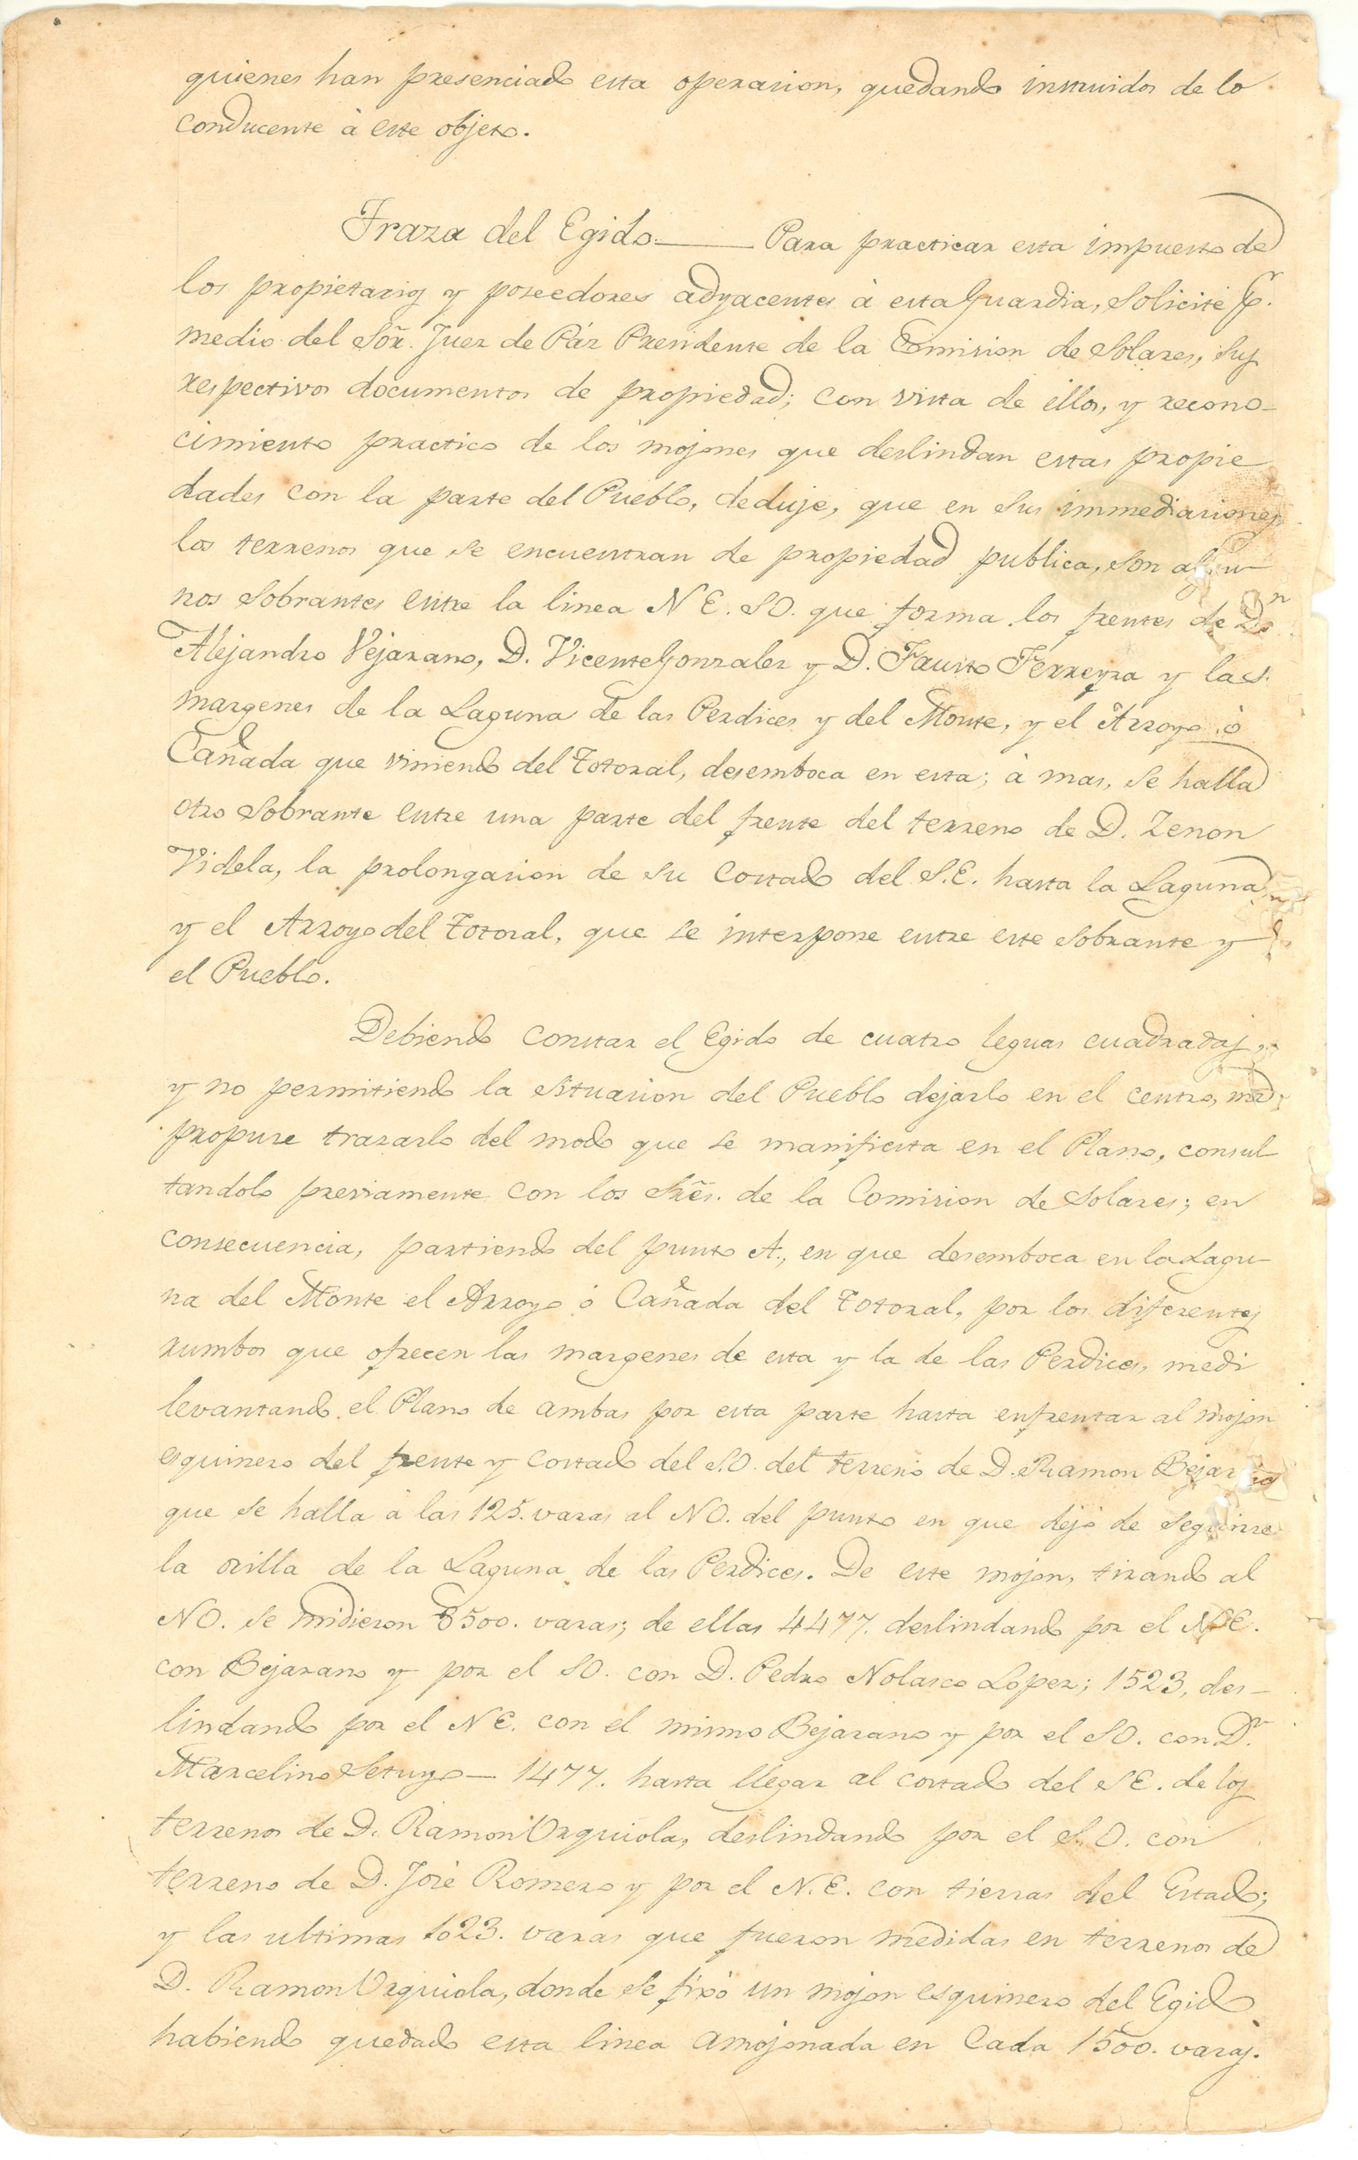 quienes han presenciado esta operasion, quedando instruidos de lo
conducente à este objeto.
Traza del Egido — Para practicar esta impuesto de
los propietarios y poseedores adyacentes à esta Guardia, solicité p.r
medio del Sõr. Juez de Páz Presidente de la Comision de Solares, sus
respectivos documentos de propiedad; con vista de ellos, y recono-
cimiento practico de los mojones que deslindan estas propie
dades con la parte del Pueblo, deduje, que en sus immediasiones
los terrenos que se encuentran de propiedad publica, son algu-
nos sobrantes entre la linea N E. S O. que forma los frentes de Dn
Alejandro Vejarano, D. Vicente Gonzalez y D. Fausto Ferreyra y las
margenes de la Laguna de las Perdices y del Monte, y el Arroyo ó
Cañada que viniendo del Totoral, desemboca en esta; à mas, se halla
otro sobrante entre una parte del frente del terreno de D. Zenon
Videla, la prolongasion de su costado del S.E. hasta la Laguna
y el Arroyo del Totoral, que se interpone entre este sobrante y
el Pueblo.
Debiendo constar el Egido de cuatro leguas cuadradas,
y no permitiendo la situasion del Pueblo dejarlo en el centro, me
propuse trazarlo del modo que se manifiesta en el Plano, consul
tandolo previamente con los Srẽs. de la Comision de Solares; en
consecuencia, partiendo del punto A., en que desemboca en la Lagu-
na del Monte el Arroyo ó Cañada del Totoral, por los diferentes
rumbos que ofrecen las margenes de esta y la de las Perdices, medi
levantando el Plano de ambas por esta parte hasta enfrentar al mojon
esquinero del frente y costado del S.O. del terreno de D. Ramon Bejarano
que se halla à las 125. varas al NO. del punto en que dejó de seguirse
la orilla de la Laguna de las Perdices. De este mojon, tirando al
NO. se midieron 8500. varas; de ellas 4477. deslindando por el NE.
con Bejarano y por el SO. con D. Pedro Nolasco Lopez; 1523, des-
lindando por el NE. con el mismo Bejarano y por el SO. con Dn.
Marcelino Setuyo — 1477. hasta llegar al costado del SE. de los
terrenos de D. Ramon Urquiola, deslindando por el S.O. con
terreno de D. José Romero y por el N.E. con tierras del Estado;
y las ultimas 1023. varas que fueron medidas en terrenos de
D. Ramon Urquiola, donde se fixó un mojon esquinero del Egido
habiendo quedado esta linea amojonada en cada 1500. varas.